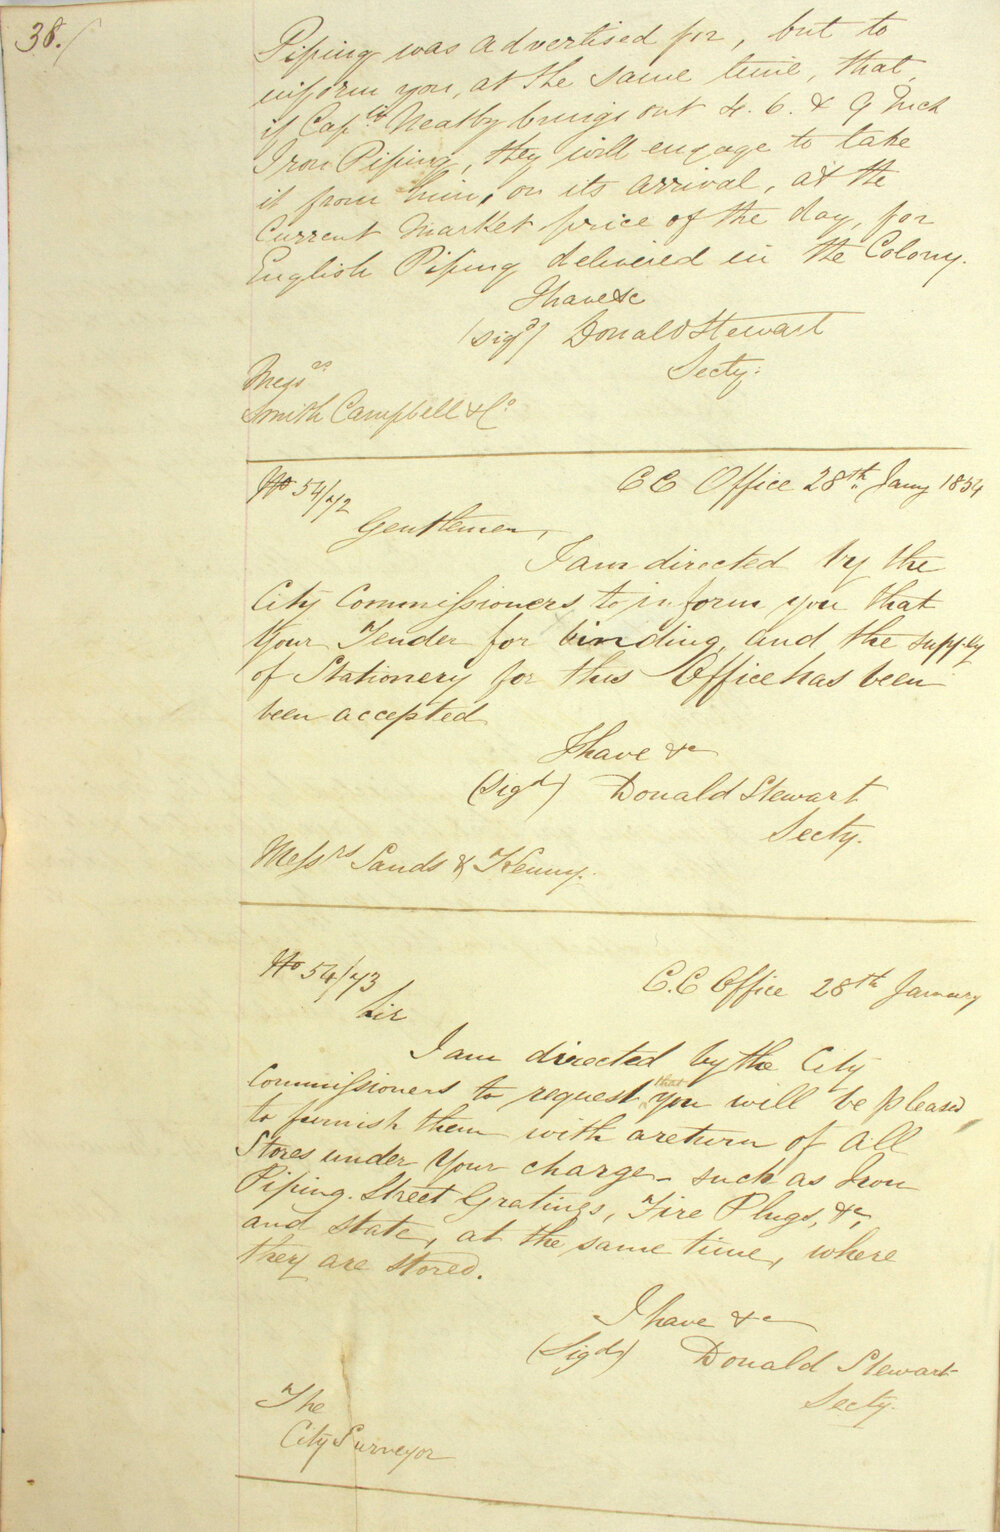 38.
Piping was advertised for, but to
inform you, at the same time, that,
if Capt. Neatby brings out 4. 6. & 9 Inch
Iron Piping, they will engage to take
it from him, on its arrival, at the
Current Market price of the day, for
English Piping delivered in the Colony.
I have &c
(sigd) Donald Stewart
Secty.
Messrs
Smith Campbell & Co
No 54/72
C C Office 28th Jany 1854
Gentlemen,
I am directed by the
City Commissioners, to inform you that
your Tender for binding, and the supply
of Stationery for this Office has been
been accepted
I have &c
(Sigd) Donald Stewart
Secty.
Messrs Sands & Kenny.
No 54/73
C.C Office 28th January
Sir
I am directed by the City
Commissioners to request that you will be pleased
to furnish them with a return of all
Stores under your charge - such as Iron
Piping. Street Gratings, Fire Plugs, &c,
and state, at the same time, where
they are stored.
I have &c
(Sigd) Donald Stewart
Secty.
The
City Surveyor